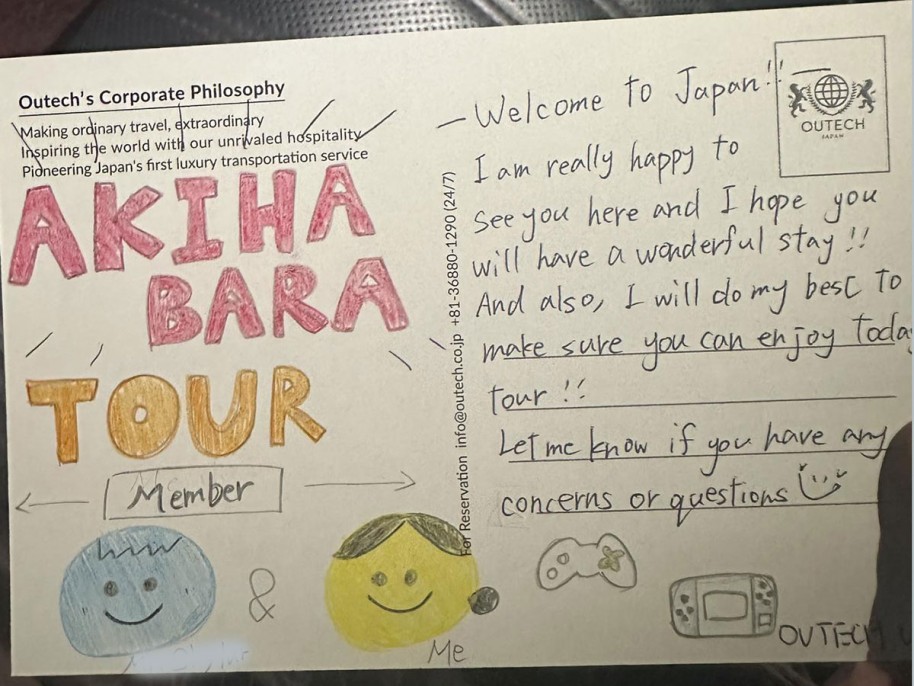 Outech's Corporate Philosophy
Making ordinary travel, extraordinary
Inspiring the world with our unrivaled hospitality
Pioneering Japan's first luxury transportation service
AKIHA
BARA
TOUR
Member
&
Me
For Reservation info@outech.co.jp +81-36880-1290 (24/7)
OUTECH
JAPAN
Welcome to Japan!!
I am really happy to
see you here and I hope you
will have a wonderful stay!!
And also, I will do my best to
make sure you can enjoy toda
tour!!
Let me know if you have any
concerns or questions
OUTECH